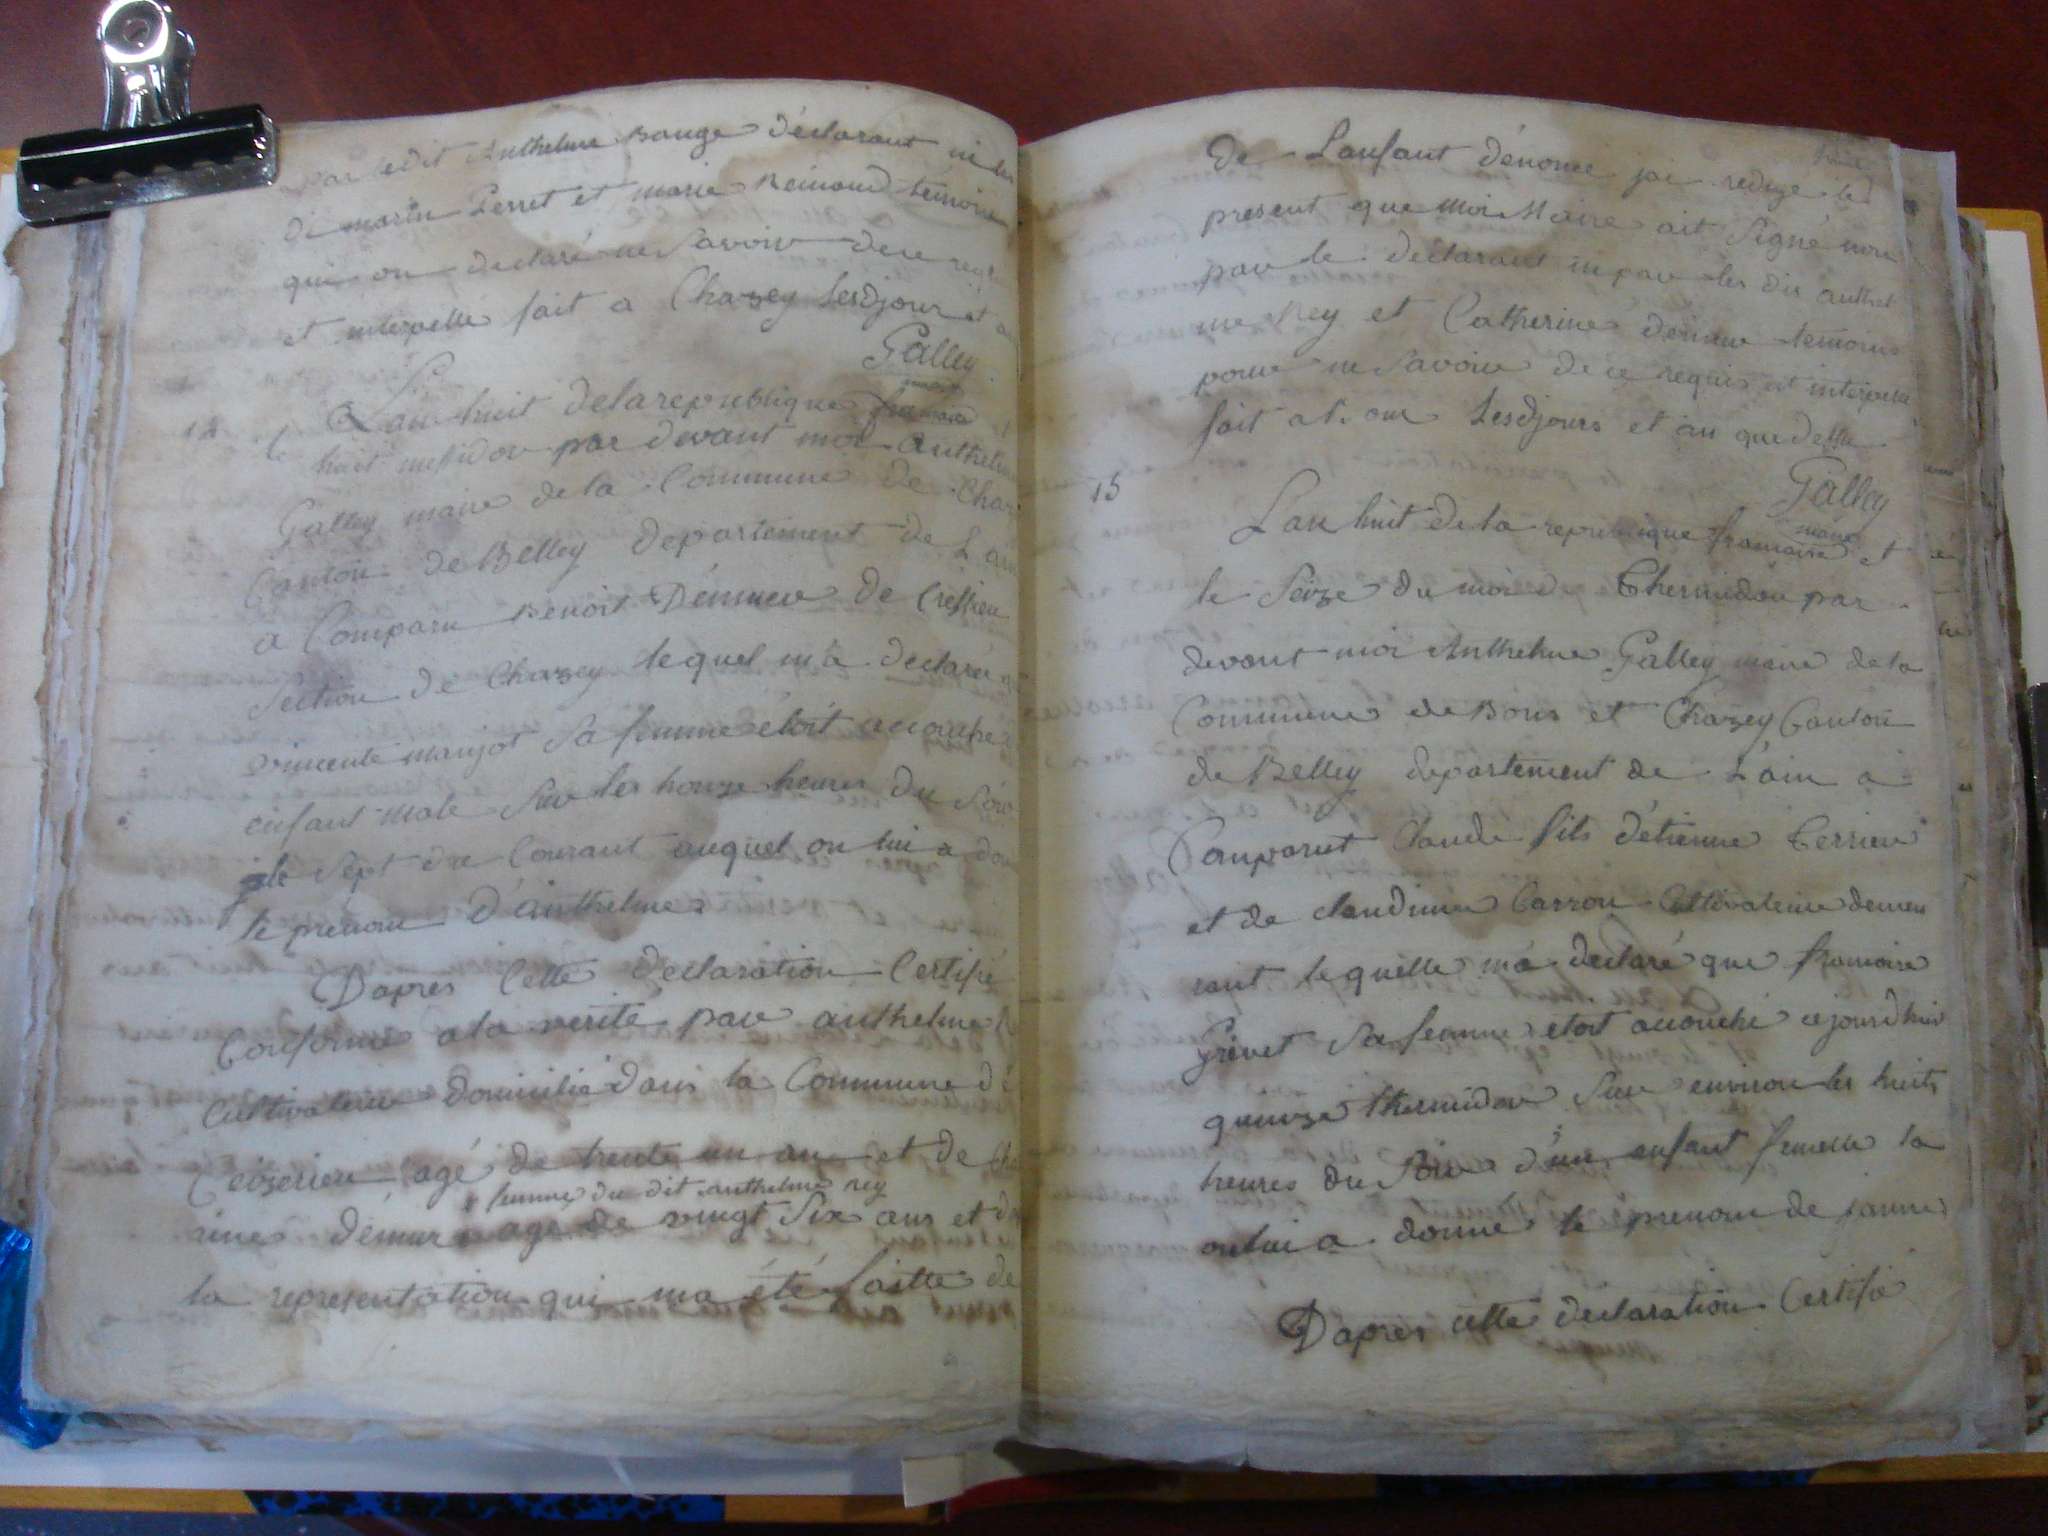 par ledit Anthelme Bauge déclarant ni les
di martin Perret et marie Reimond témoins
qui on declaré ne Savoir de ce
et interpellé fait a Chazey lesdjour et an
Galley
maire
14
L'an huit delarepublique francaise et
le huit messidor par devant moi Anthelme
Galley maire de la Commune de Chaz
Canton de Belley departement de L'ain
a Comparu Benoit Démeure de Cressieu
Section de Chazey lequel m'a declaré q
vincente manjot Sa femme étoit accouché
enfant male Sur les honze heures du Soir
le Sept du Courant auquel on lui a don
le prenom d'anthelme
D'apres Cette declaration Certifié
Conforme a la verité par anthelme R
Cultivateur domicilié dans la Commune de
Ceizerieu agé de trente un an et de Cha
rine démur age de vingt Six ans et d
femme du dit anthelme rey
la representation qui ma été faitte de
huit
De Lanfant dénomé jai redigé le
present que moi Maire ait Signé non
par le déclarant ni par les dis anthel
me Rey et Catherine demeur temoins
pour ne Savoir de ce requis et interpellé
fait a Lesdjours et an que dessu
Galley
maire
15
Lan huit de la republique francaise et
le Seize du moi de Thermidor par
devant moi Anthelme Galley maire de la
Commune de Bons et Chazey Canton
de Belley departement de L'ain a
Comparut Claude fils d'étienne Terrier
et de claudine Carron Cultivateur demeu
rant lequelle m'a declaré que francoise
Grivet Sa femme etoit accouché cejourdhui
quinze thermidor Sur environ les huits
heures du Soir d'un enfant femelle la
on lui a donné le prenom de janne
D'apres cette déclaration Certifié